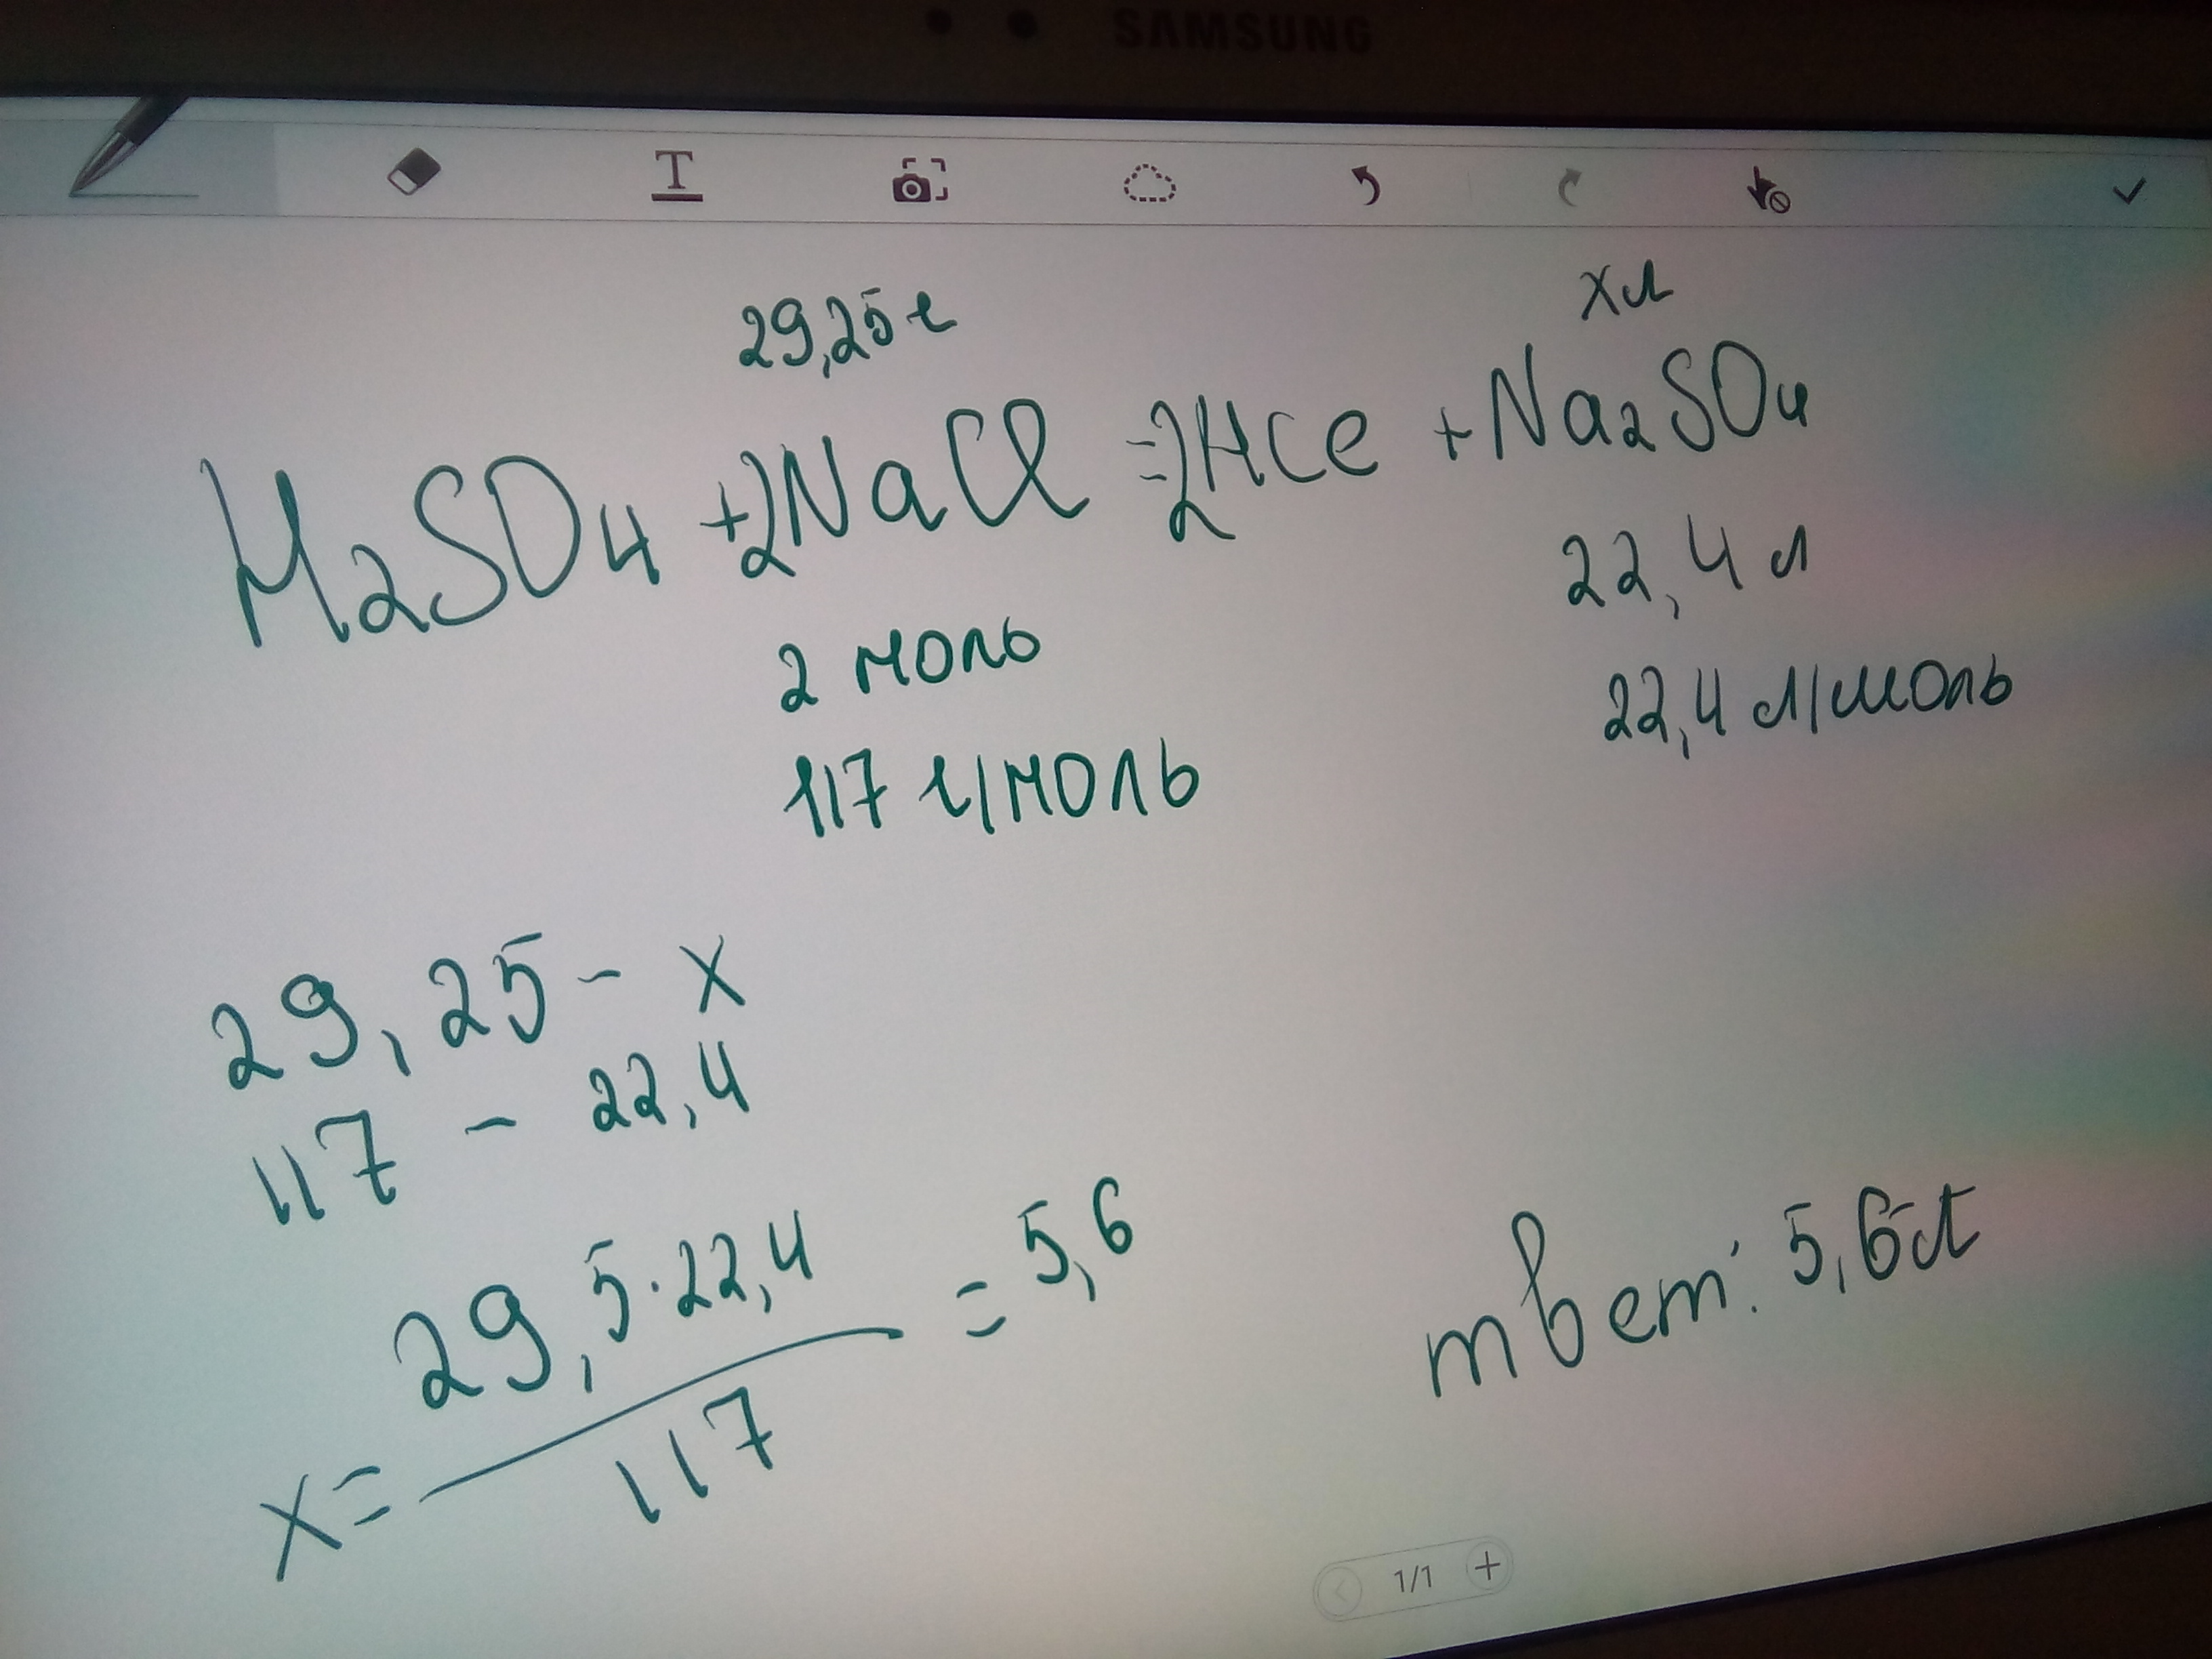 SAMSUNG
T
29,25 г
хл
H2SO4 +2NaCl =2HCl +Na2SO4
2 моль
22,4 л
117 г/моль
22,4 л/моль
29,25 - x
117 - 22,4
x= 29,5·22,4 / 117 = 5,6
твет: 5,6л
1/1 +